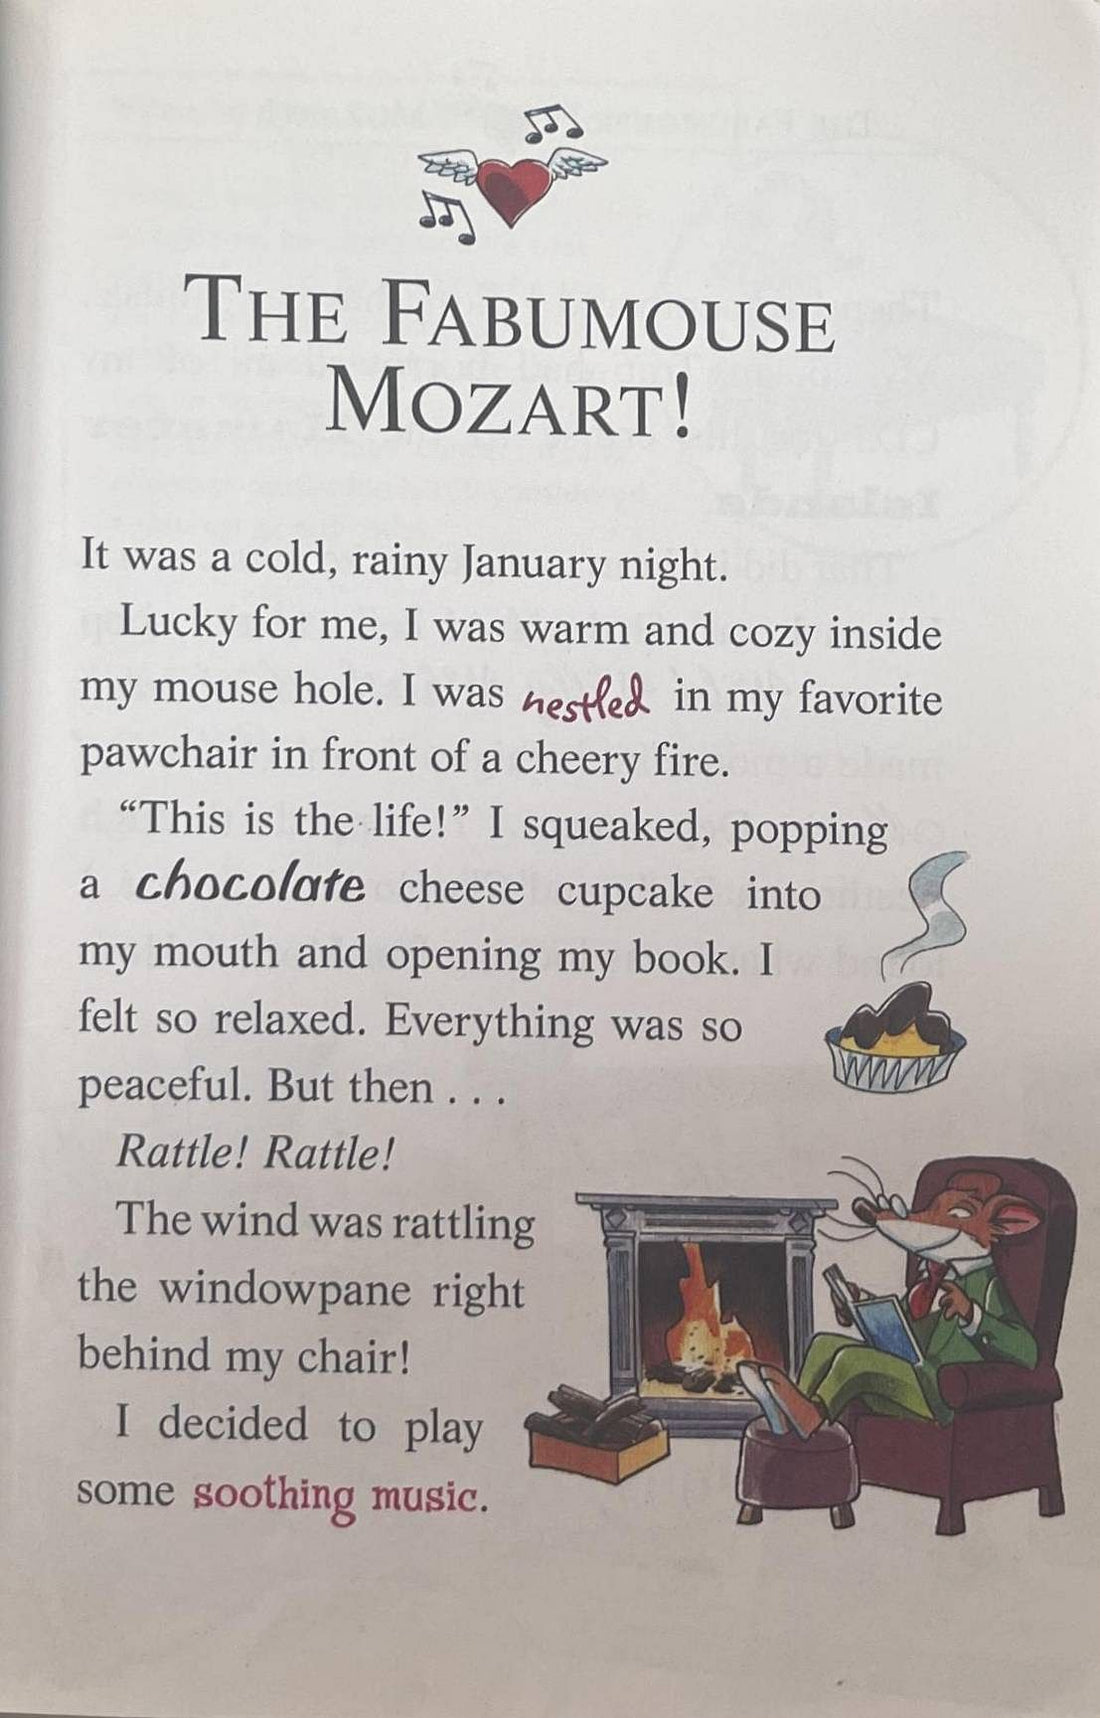 THE FABUMOUSE
MOZART!
It was a cold, rainy January night.
Lucky for me, I was warm and cozy inside
my mouse hole. I was nestled in my favorite
pawchair in front of a cheery fire.
“This is the life!” I squeaked, popping
a chocolate cheese cupcake into
my mouth and opening my book. I
felt so relaxed. Everything was so
peaceful. But then . . .
Rattle! Rattle!
The wind was rattling
the windowpane right
behind my chair!
I decided to play
some soothing music.